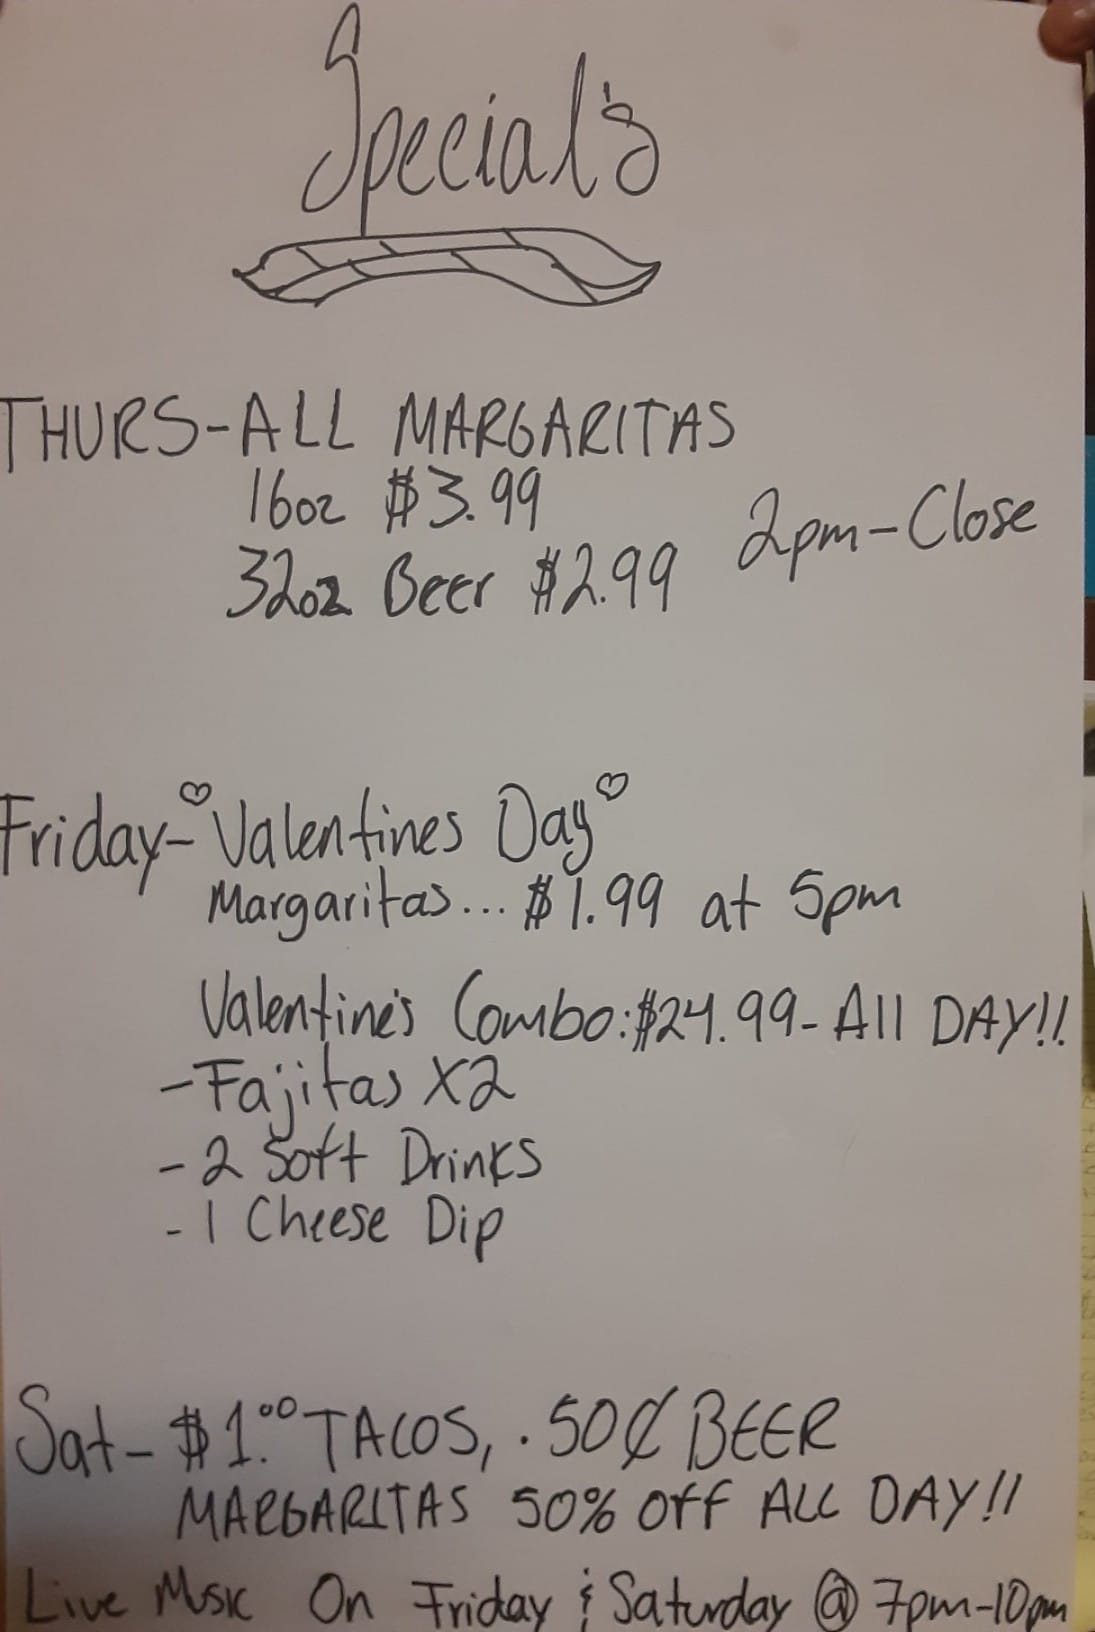 Special's
THURS-ALL MARGARITAS
16oz $3.99
2pm-Close
32oz Beer $2.99
Friday-♡Valentines Day♡
Margaritas... $1.99 at 5pm
Valentine's Combo:$24.99- All DAY!!
-Fajitas X2
-2 Soft Drinks
-1 Cheese Dip
Sat- $1.00 TACOS, .50¢ BEER
MARGARITAS 50% Off ALL DAY!!
Live Music On Friday & Saturday @ 7pm-10pm